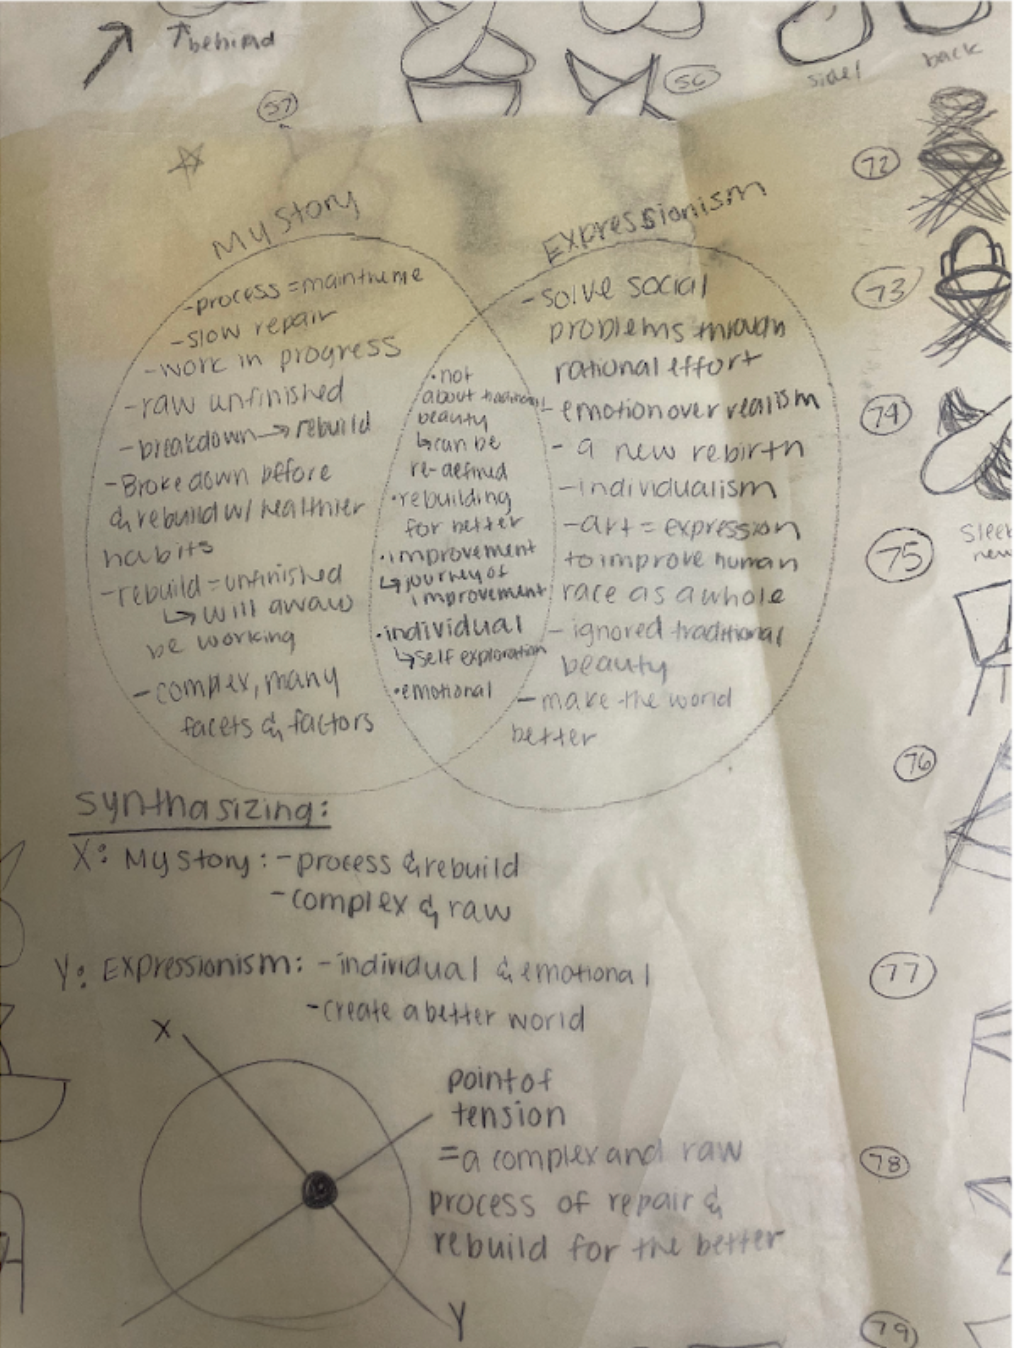 behind
side1
back
56
57
72
73
74
75
76
77
78
79
My Story
- process = main theme
- slow repair
- work in progress
- raw unfinished
- breakdown → rebuild
- Broke down before
& rebuild w/ healthier
habits
- rebuild = unfinished
↳ will
be working
- complex, many
facets & factors
• not
about traditional
beauty
↳ can be
re-defined
• rebuilding
for better
• improvement
↳ journey of
improvement
• individual
↳ self exploration
• emotional
Expressionism
- solve social
problems through
rational effort
- emotion over realism
- a new rebirth
- individualism
- art = expression
to improve human
race as a whole
- ignored traditional
beauty
- make the world
better
synthasizing:
X: My Story: - process & rebuild
- complex & raw
Y: Expressionism: - individual & emotional
- create a better world
X
point of
tension
= a complex and raw
process of repair &
rebuild for the better
Y